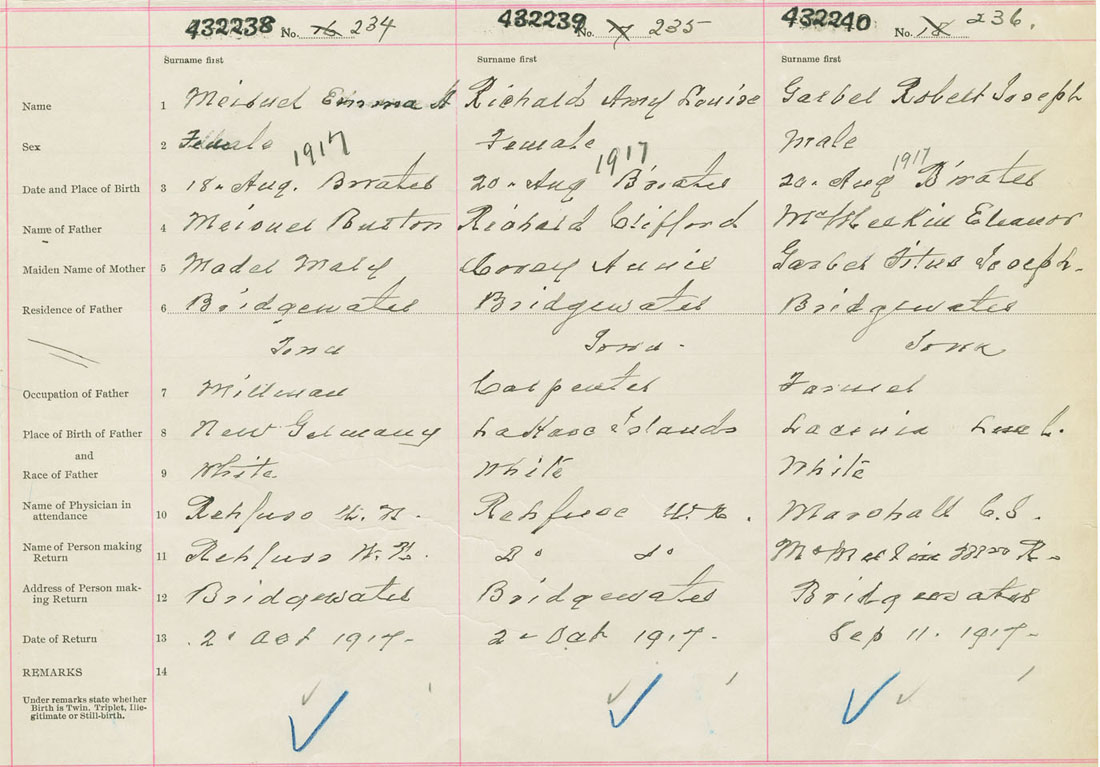 432238 No. 16 234 432239 No. 17 235 432240 No. 18 236.
Surname first Surname first Surname first
Name 1 Meisuel Emma A Richard Amy Louise Garbel Robert Joseph
Sex 2 Female Female Male
1917 1917 1917
Date and Place of Birth 3 18 - Aug. B'water 20 - Aug B'water 20 - Aug B'water
Name of Father 4 Meisuel Burton Richard Clifford Eleanor
Maiden Name of Mother 5 Mader Mary Corey Annie Garbel Titus Joseph -
Residence of Father 6 Bridgewater Bridgewater Bridgewater
Town Town - Town
Occupation of Father 7 Millman Carpenter Farmer
Place of Birth of Father 8 New Germany LaHave Islands
and
Race of Father 9 White White White
Name of Physician in
attendance 10 Rehfuss W. N. Rehfuss W. N. Marshall C. S.
Name of Person making
Return 11 Rehfuss W. N. Do Do
Address of Person mak-
ing Return 12 Bridgewater Bridgewater Bridgewater
Date of Return 13 2 Oct 1917 - 2 - Oct 1917 - Sep 11. 1917 -
REMARKS 14
Under remarks state whether
Birth is Twin, Triplet, Ille-
gitimate or Still-birth.